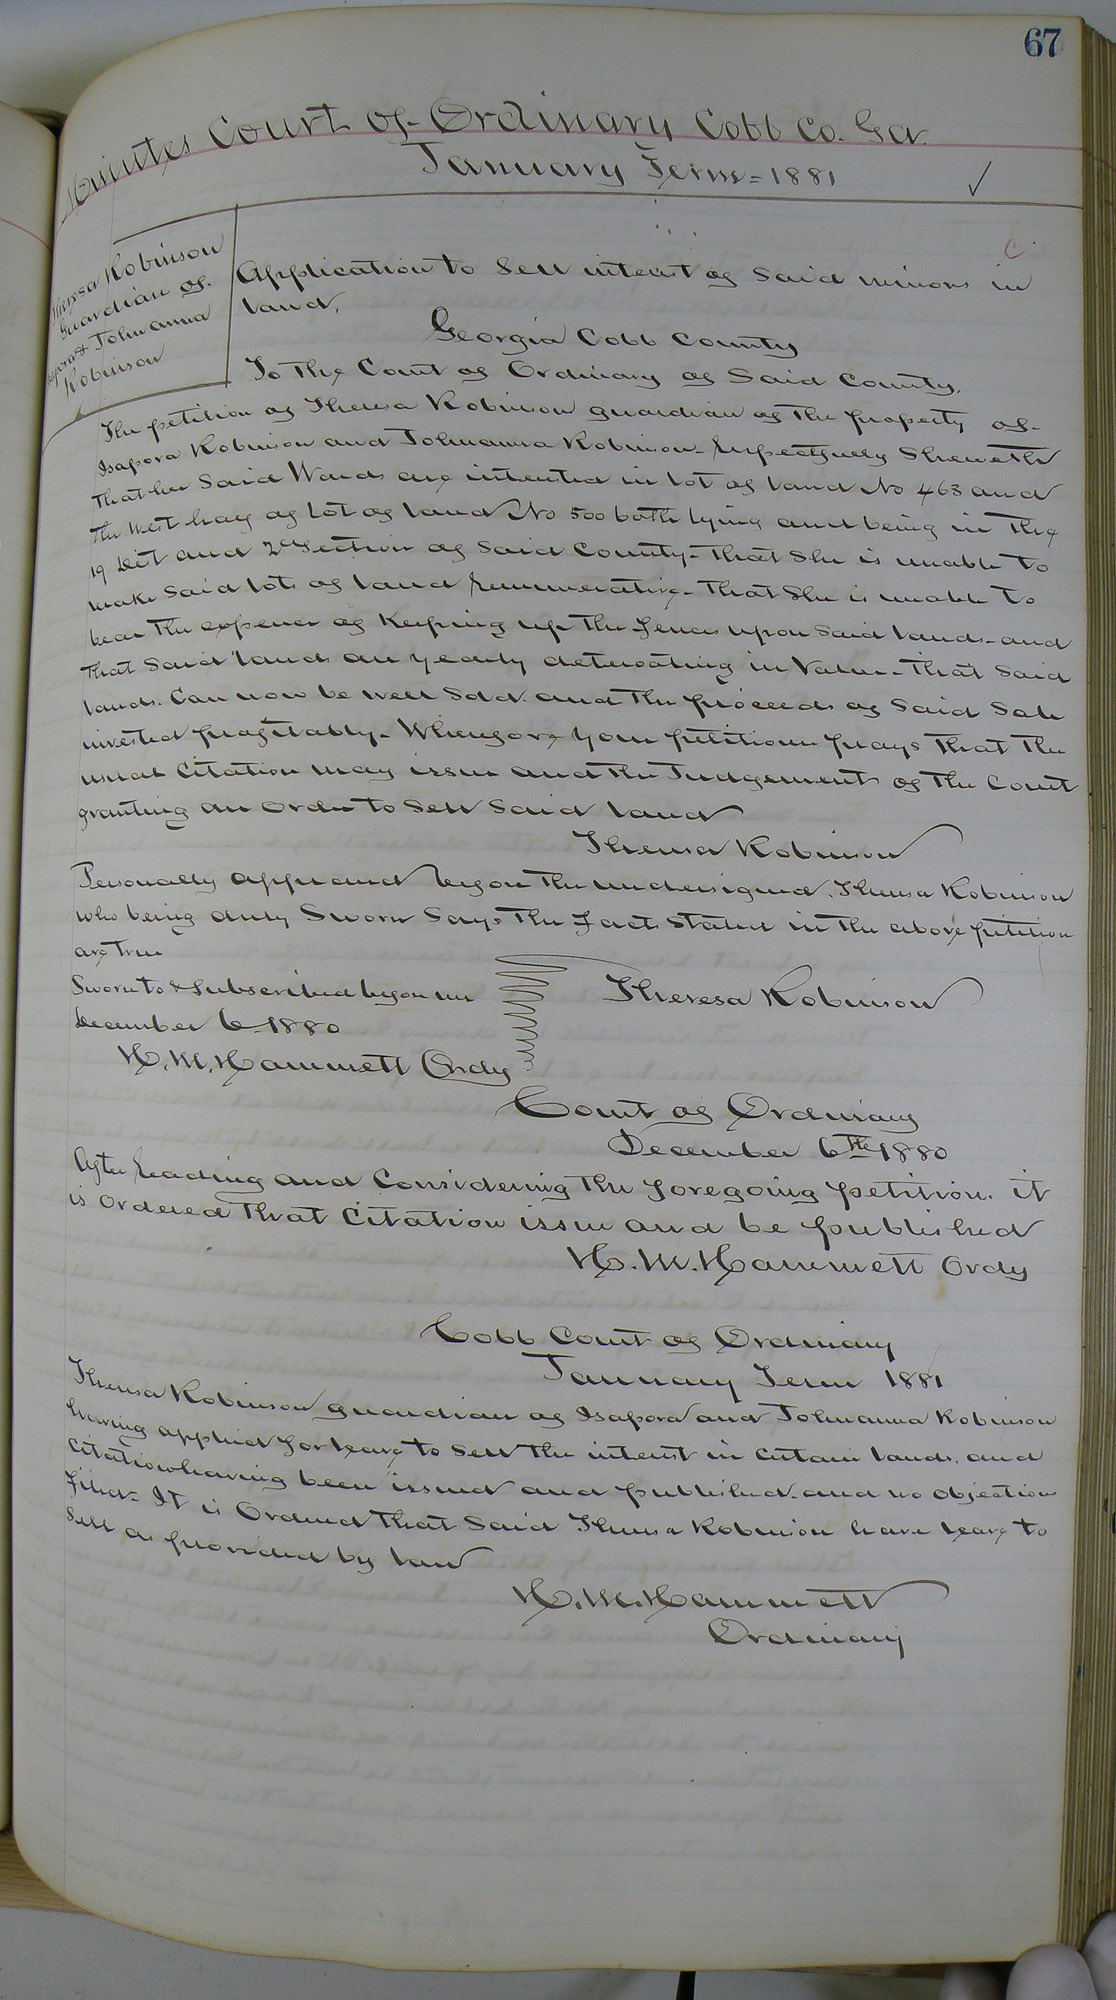 67
Minutes Court of Ordinary Cobb Co. Ga.
January Term = 1881 ✓
C.
Theresa Robinson
Guardian of
Isapora & Johnanna
Robinson
Application to Sell interest of Said minors in
land.
Georgia Cobb County
To The Court of Ordinary of Said County.
The petition of Theresa Robinson guardian of The property of
Isapora Robinson and Johnanna Robinson. Respectfully Sheweth
That her Said Wards are interested in lot of land No 468 and
The West half of Lot of land No 500 both lying and being in The
19 Dist and 2d Section of Said County. That She is unable To
make Said lots of land remunerative. That She is unable To
bear The expense of Keeping up The fences upon Said lands. and
That Said lands are yearly in Value. That Said
lands. Can now be well Sold. and The proceeds of Said Sale
invested profitably. Wherefore your petitioner prays That The
usual Citation may issue and The Judgement of The Court
granting an order to Sell Said land
Theresa Robinson
Personally appeared before The undersigned. Theresa Robinson
who being duly Sworn Says The facts Stated in The above petition
are True
Sworn to & Subscribed before me
December 6 1880
Theresa Robinson
H. M. Hammett Ordy
Court of Ordinary
December 6th 1880
After reading and Considering The foregoing petition. it
is ordered That Citation issue and be published
H. M. Hammett Ordy
Cobb Court of Ordinary
January Term 1881
Theresa Robinson guardian of Isapora and Johnanna Robinson
having applied for leave to Sell The interest in certain lands. and
Citation having been issued and published. and no objection
filed. It is Ordered That Said Theresa Robinson have leave to
Sell as provided by law
H. M. Hammett
Ordinary